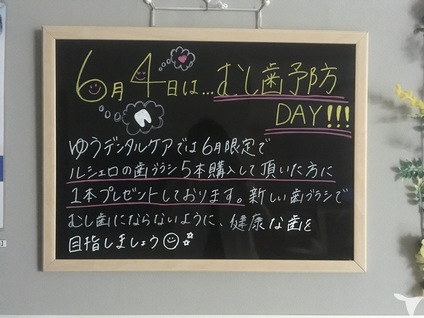 6月4日は...むし歯予防
DAY!!!
ゆうデンタルケアでは6月限定で
ルシェロの歯ブラシ5本購入して頂いた方に
1本プレゼントしております。新しい歯ブラシで
むし歯にならないように、健康な歯を
目指しましょう